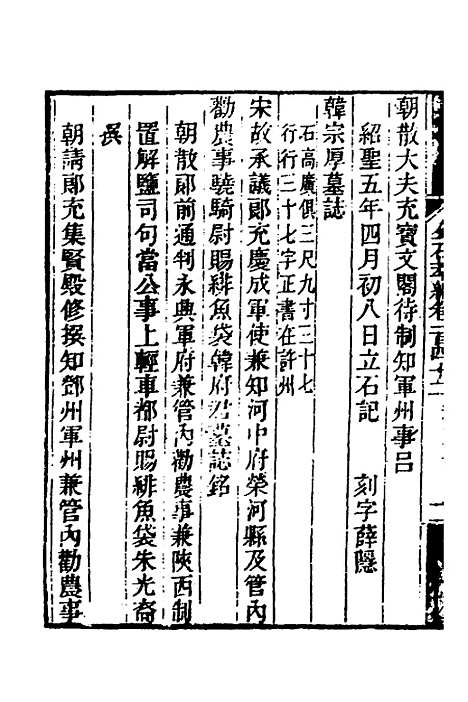 朝散大夫充寶文閣待制知軍州事呂
紹聖五年四月初八日立石記　刻字薛隱
韓宗厚墓誌
石高廣俱三尺九寸三十七
行行三十七字正書在許州
宋故承議郎充慶成軍使兼知河中府榮河縣及管內
勸農事驍騎尉賜緋魚袋韓府君墓誌銘
朝散郎前通判永興軍府兼管內勸農事兼陝西制
置解鹽司句當公事上輕車都尉賜緋魚袋朱光裔
撰
朝請郎充集賢殿修撰知鄧州軍州兼管內勸農事